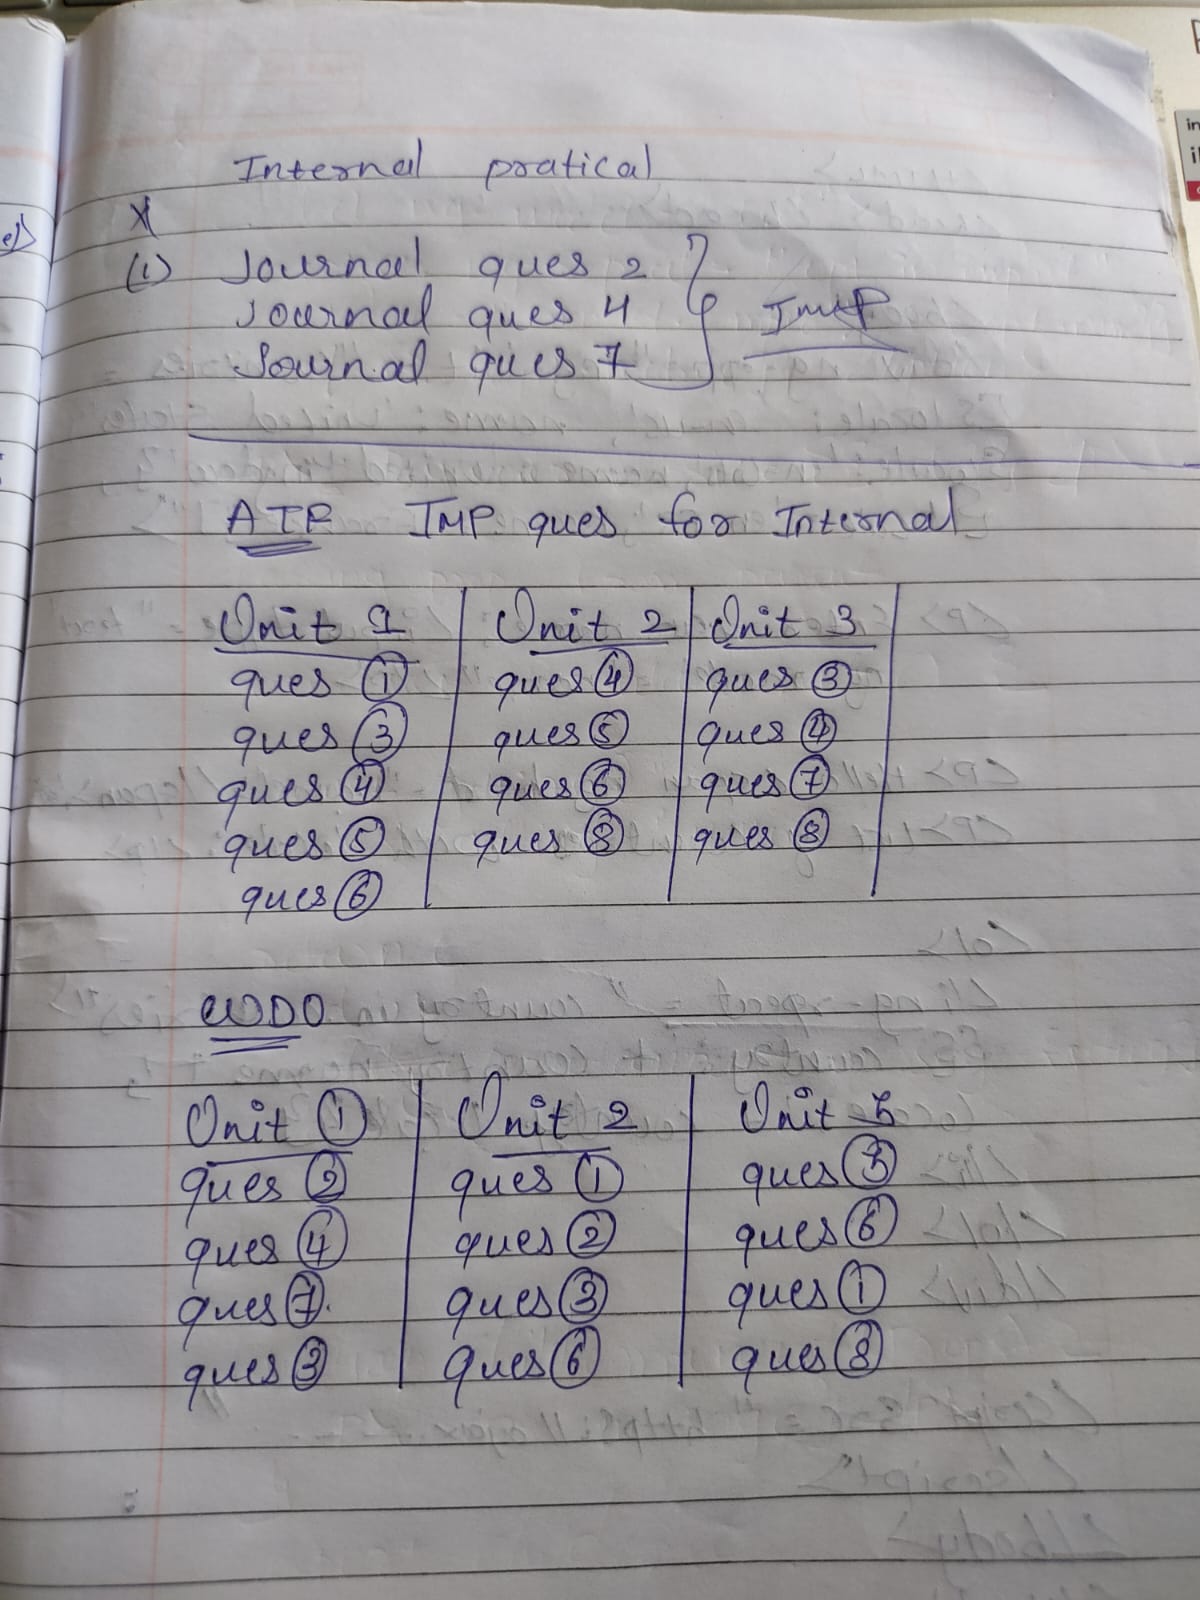 Internal pratical
(1) Journal ques 2
Journal ques 4 IMP
Journal ques 7
IMP ques for Internal
Unit 1 Unit 2 Unit 3
ques ① ques ④ ques ③
ques ③ ques ⑤ ques ④
ques ④ ques ⑥ ques ⑦
ques ⑤ ques ⑧ ques ⑧
ques ⑥
WDO
Unit ① Unit 2 Unit
ques ② ques ① ques ③
ques ④ ques ② ques ⑥
ques ⑦ ques ③ ques ①
ques ③ ques ⑥ ques ⑧